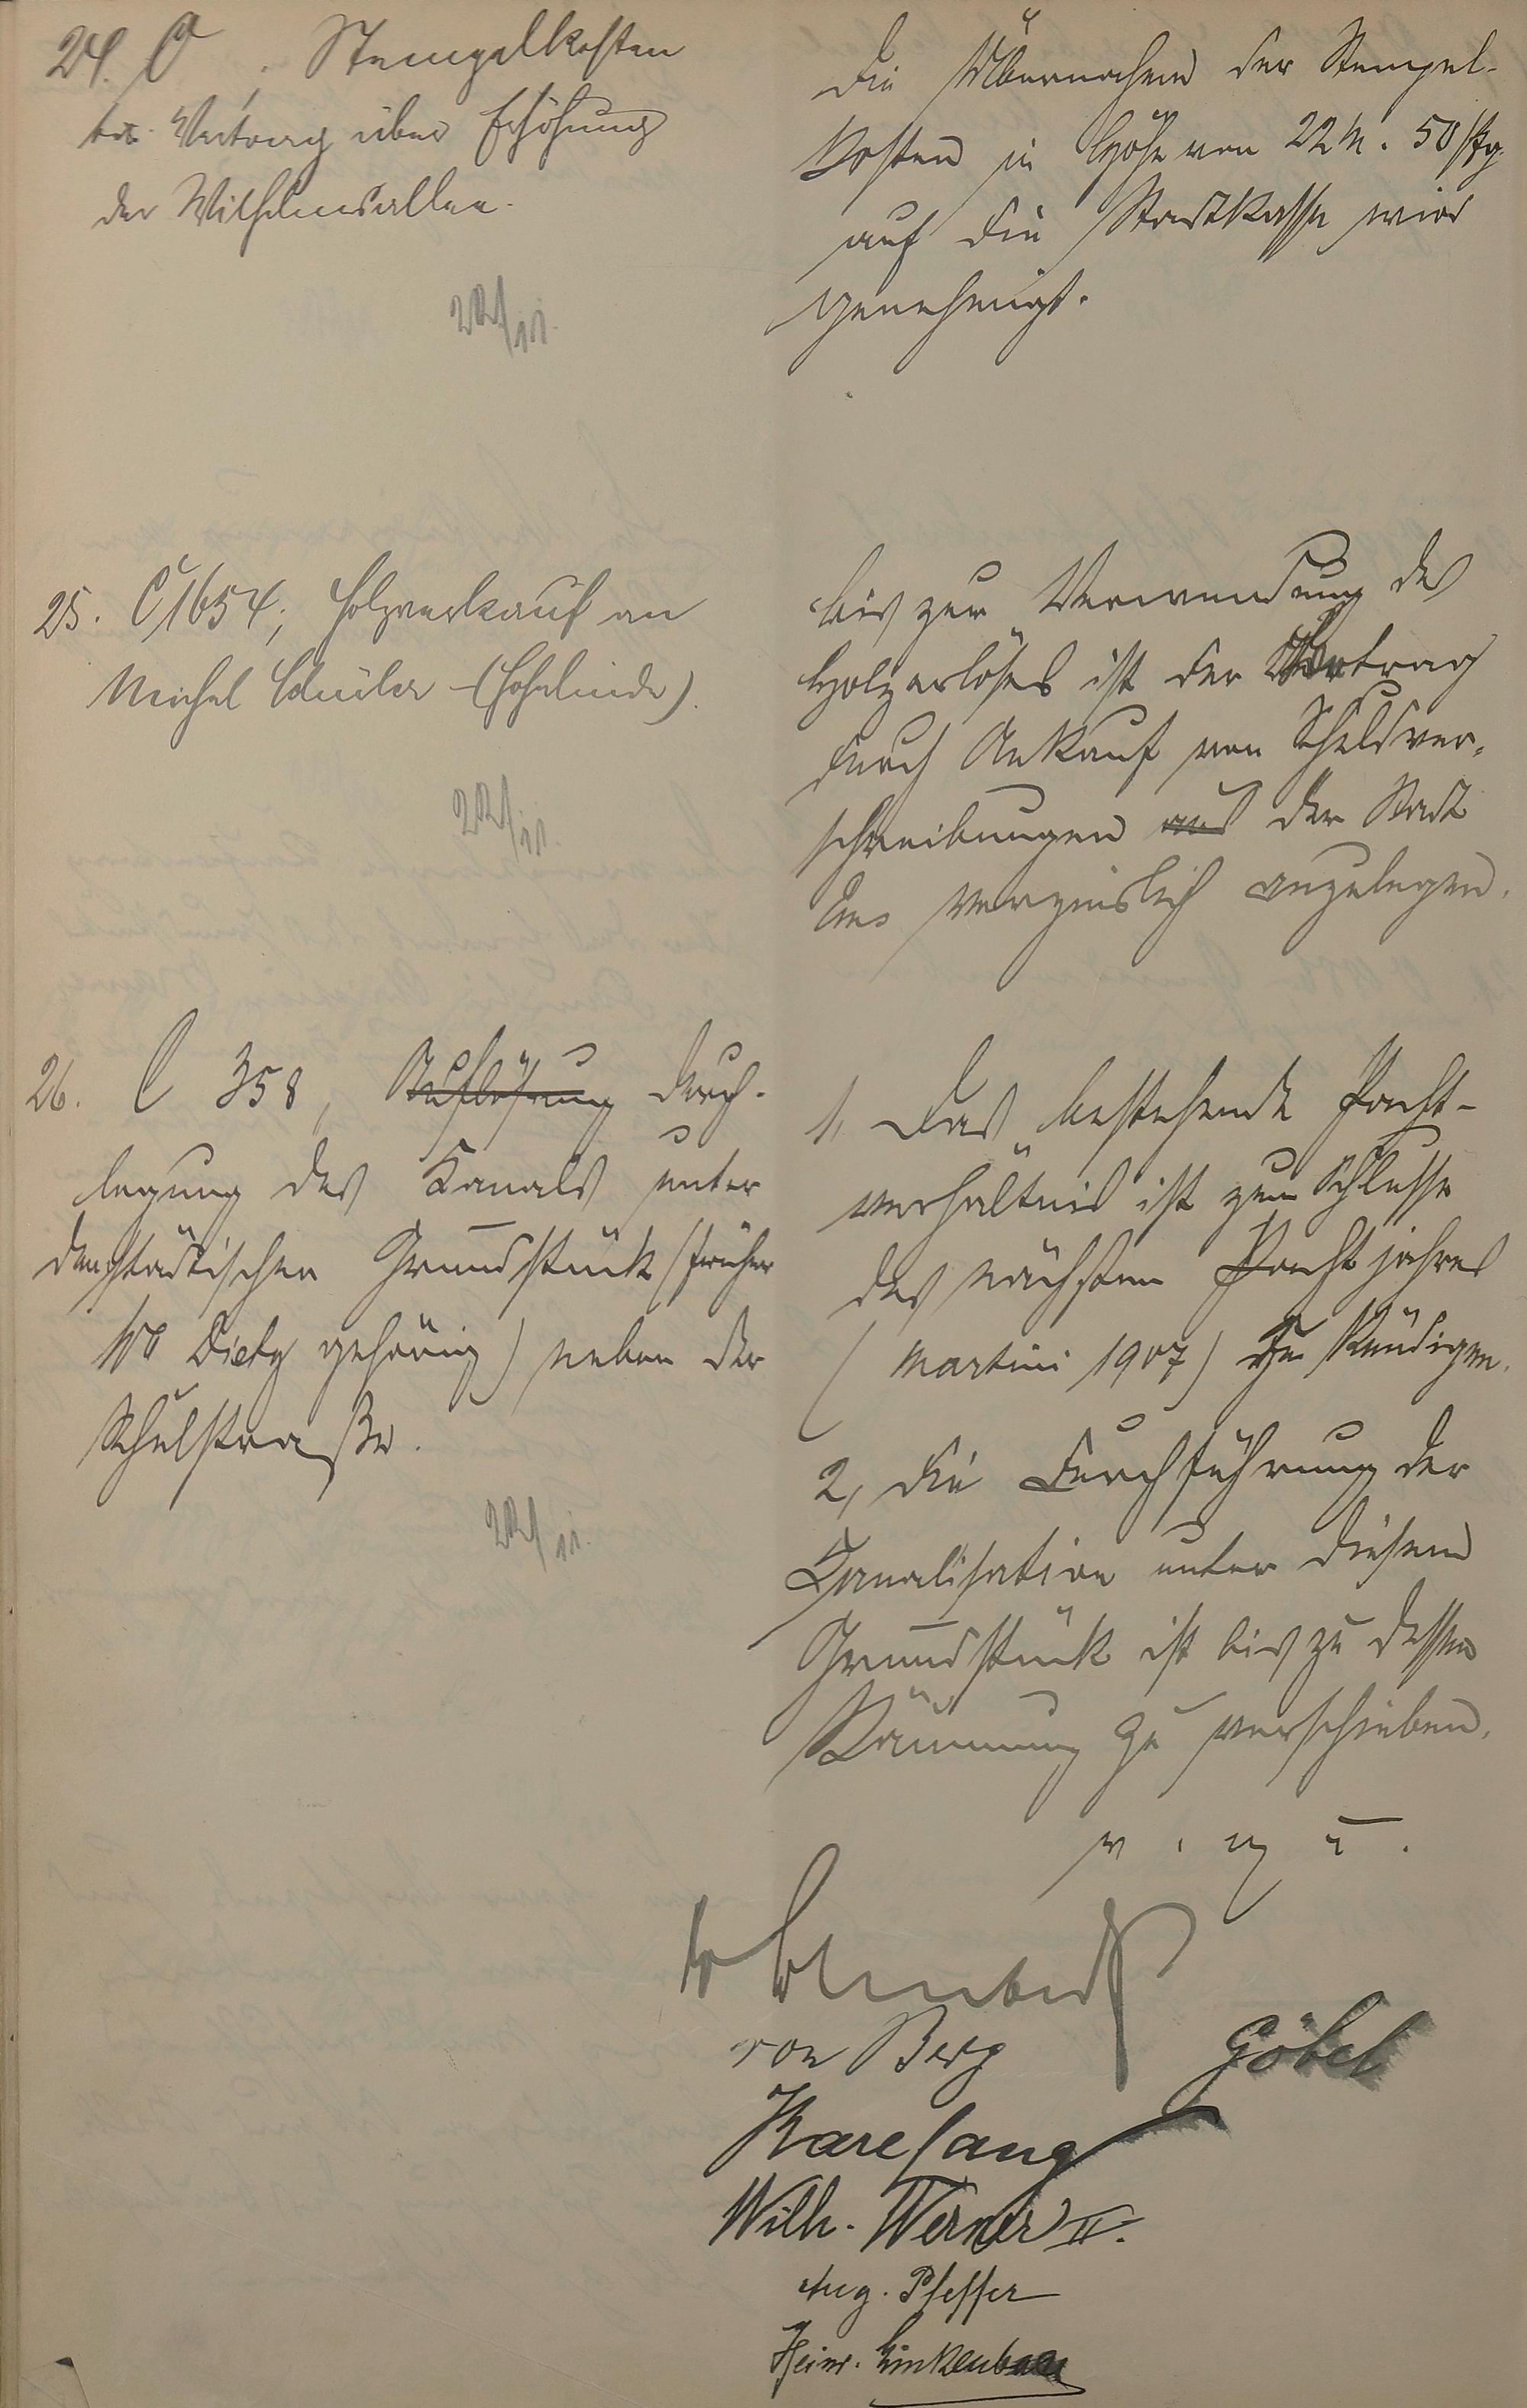 24. C , Stempelkosten
btr. Vertrag über Erhöhung
der Wilhelmsallee.
22/11.
Die Übernahme der Stempel-
kosten in Höhe von 22 M. 50 Pfg.
auf die Stadtkasse wird
genehmigt.
25. C 1654, Holzverkauf an
Michel Schuler (Hohelinde).
22/11.
Bis zur Verwendung des
Holzerlöses ist der Betrag
durch Ankauf von Schuldver-
schreibungen aus der Stadt
Ems verzinslich anzulegen.
26. C 358, Auflösung Durch-
legung des Kanals unter
dem städtischen Grundstück (früher
Diety gehörig) neben der
Schulstraße.
22/11.
1, Das bestehende Pacht-
verhältnis ist zum Schlusse
des nächsten Pachtjahres
(Martini 1907) zu kündigen.
2, Die Durchführung der
Kanalisation unter diesem
Grundstück ist bis zu dessen
Räumung zu verschieben.
v. g. u.
von Berg
Göbel
Karl Lang
Wilh. Werner II.
Aug. Pfeffer
Heinr. Linkenbach